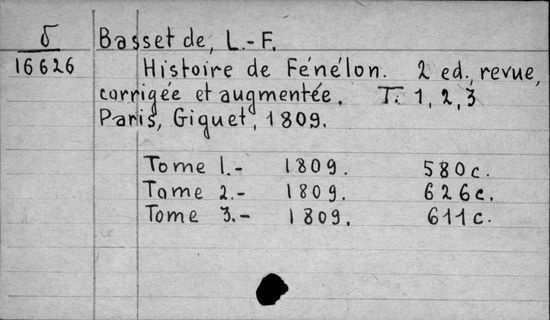 б
16626
Basset de, L.-F.
Histoire de Fénélon. 2 ed., revue,
corrigée et augmentée. T. 1, 2, 3
Paris, Giguet, 1809.
Tome 1.- 1809. 580c.
Tome 2.- 1809. 626c.
Tome 3.- 1809. 611c.